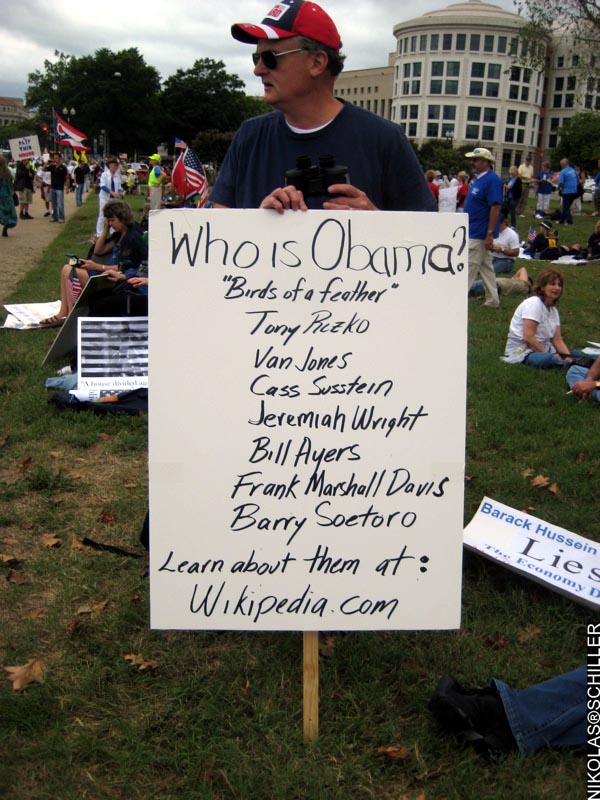 Who is Obama?
"Birds of a feather"
Tony Rezko
Van Jones
Cass Susstein
Jeremiah Wright
Bill Ayers
Frank Marshall Davis
Barry Soetoro
Learn about them at:
Wikipedia.com
"A house divided
Barack Hussein
Lies
The Economy D
NIKOLAS@SCHILLER